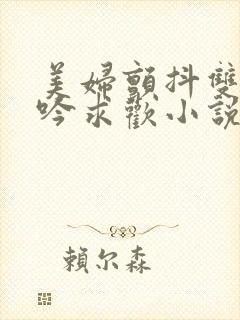 美婦顫抖雙
吟求歡小說
賴尔森